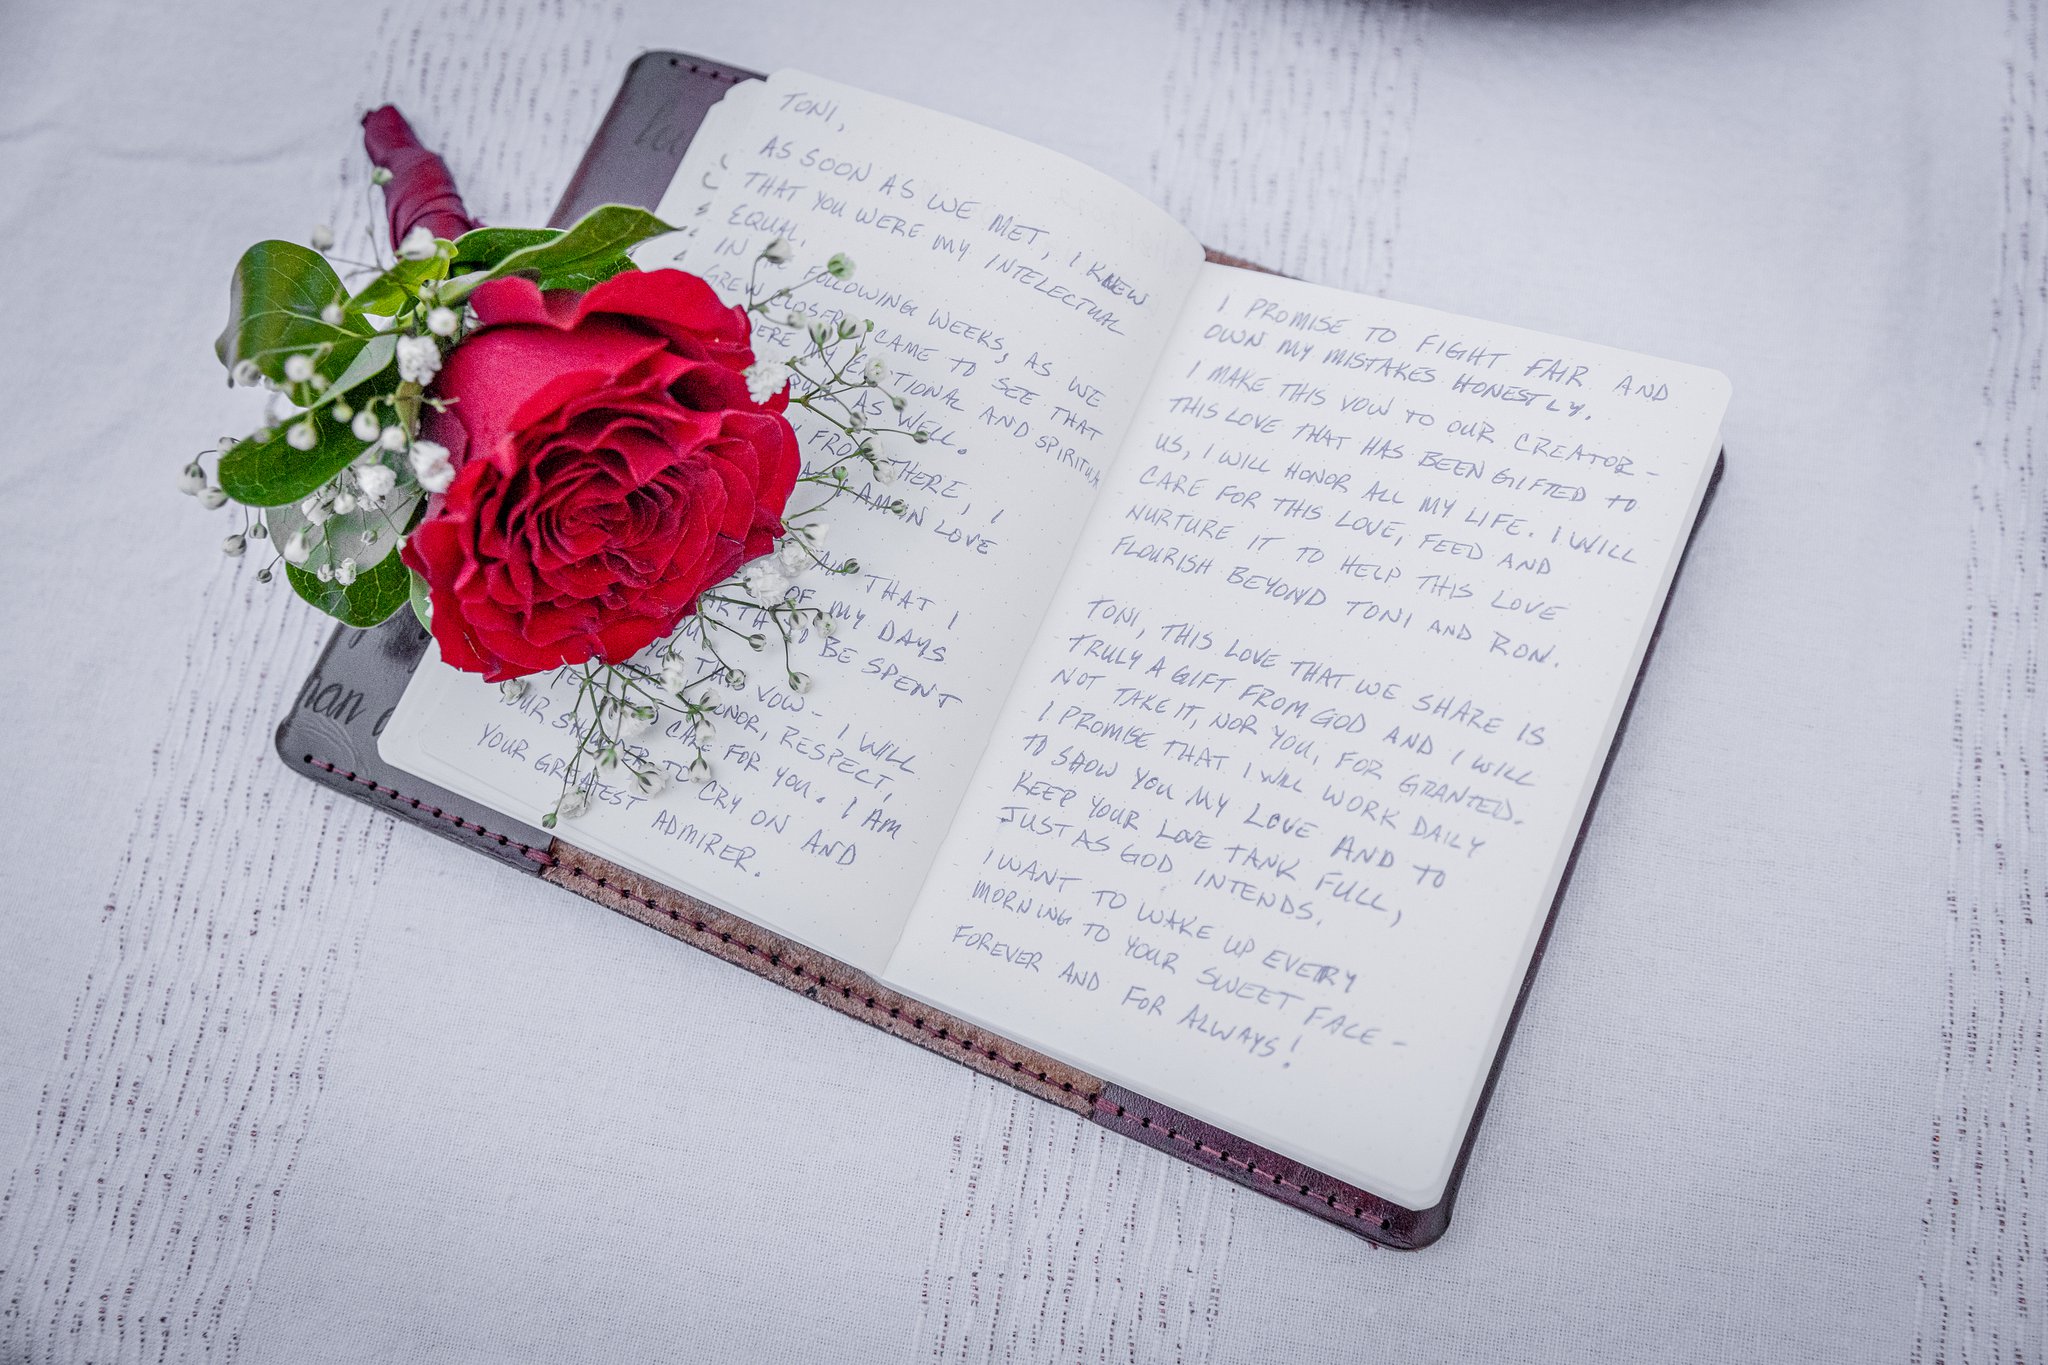 TONI,
AS SOON AS WE MET, I KNEW
THAT YOU WERE MY INTELECTUAL
EQUAL.
IN FOLLOWING WEEKS, AS WE
GREW CLOSER, CAME TO SEE THAT
MY EMOTIONAL AND SPIRITUAL
AS WELL.
FROM THERE, I
I AM IN LOVE
THAT I
OF MY DAYS
TO BE SPENT
YOU THIS VOW - I WILL
HONOR, RESPECT,
CARE FOR YOU. I AM
YOUR SHOULDER TO CRY ON AND
YOUR GREATEST ADMIRER.
I PROMISE TO FIGHT FAIR AND
OWN MY MISTAKES HONESTLY.
I MAKE THIS VOW TO OUR CREATOR -
THIS LOVE THAT HAS BEEN GIFTED TO
US, I WILL HONOR ALL MY LIFE. I WILL
CARE FOR THIS LOVE, FEED AND
NURTURE IT TO HELP THIS LOVE
FLOURISH BEYOND TONI AND RON.
TONI, THIS LOVE THAT WE SHARE IS
TRULY A GIFT FROM GOD AND I WILL
NOT TAKE IT, NOR YOU, FOR GRANTED.
I PROMISE THAT I WILL WORK DAILY
TO SHOW YOU MY LOVE AND TO
KEEP YOUR LOVE TANK FULL,
JUST AS GOD INTENDS.
I WANT TO WAKE UP EVERY
MORNING TO YOUR SWEET FACE -
FOREVER AND FOR ALWAYS!